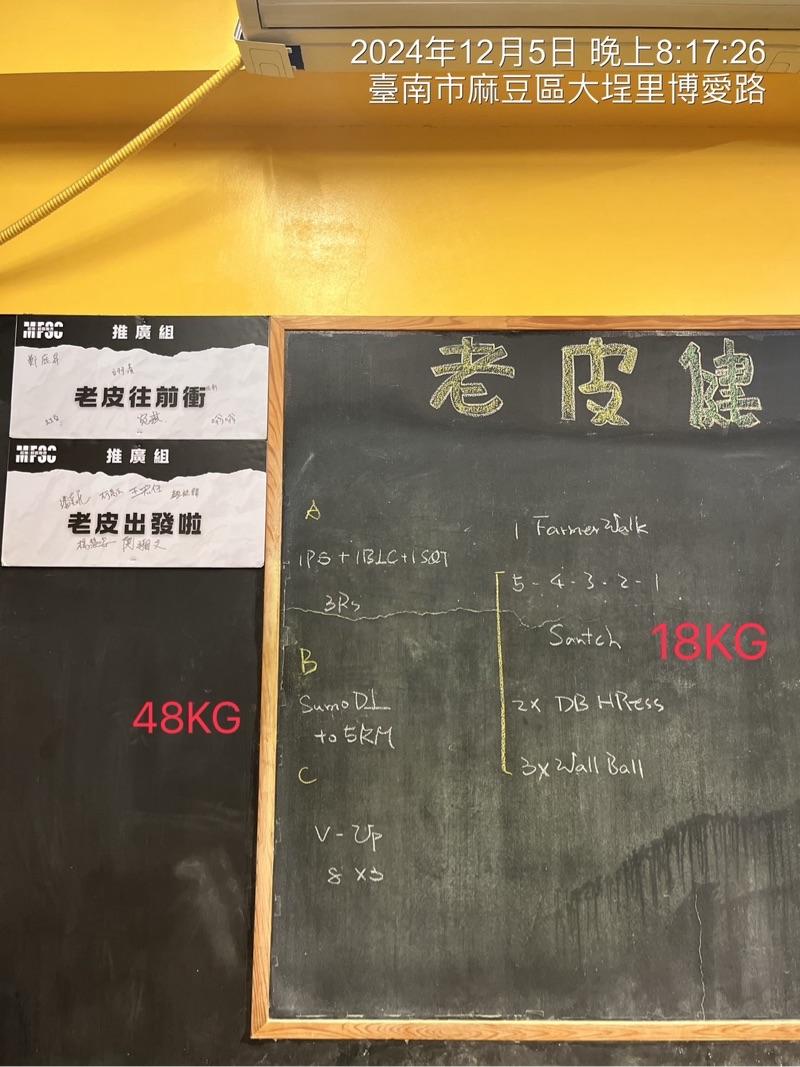 2024年12月5日 晚上8:17:26
臺南市麻豆區大埕里博愛路
MFSC 推廣組
老皮往前衝
MFSC 推廣組
老皮出發啦
老皮健
A
1PS+1BLC+1SQT
3Rs
B
Sumo DL
to 5RM
C
V-Up
8 X3
1 Farmer Walk
5-4-3-2-1
Santch
2x DB HPress
3x Wall Ball
48KG
18KG